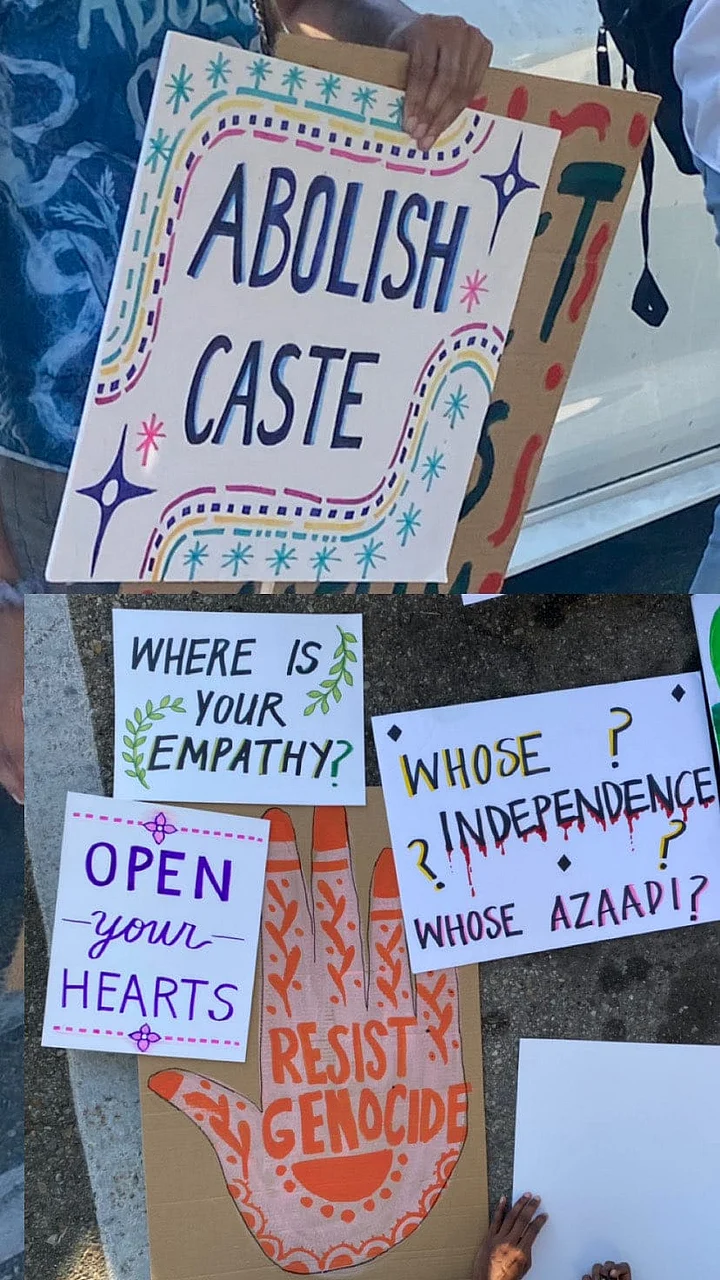 ABOLISH
CASTE
WHERE IS
YOUR
EMPATHY?
WHOSE ?
? INDEPENDENCE
?
WHOSE AZAADI?
OPEN
your
HEARTS
RESIST
GENOCIDE